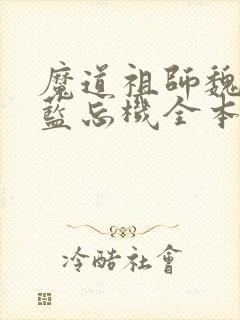 魔道祖師魏
藍忘機全本
冷酷社會